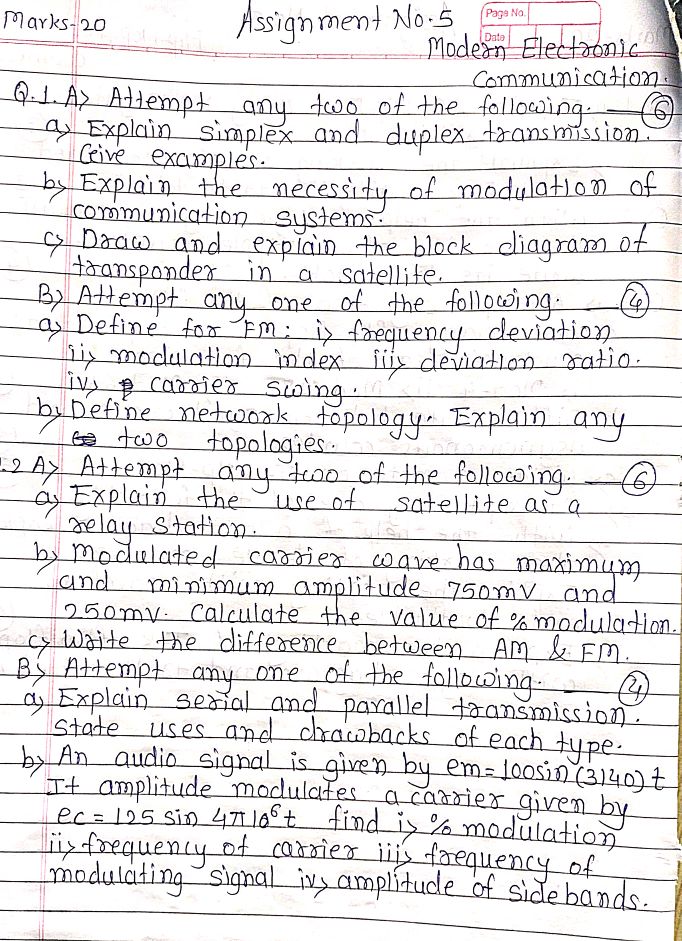 Marks-20 Assignment No.5 Page No.
Date
Modern Electronic
Communication.
Q.1.A> Attempt any two of the following. — 6
a> Explain simplex and duplex transmission.
Give examples.
b> Explain the necessity of modulation of
communication systems.
c> Draw and explain the block diagram of
transponder in a satellite.
B> Attempt any one of the following. 4
a> Define for FM: i> frequency deviation
ii> modulation index iii> deviation ratio.
iv> carrier swing.
b> Define network topology. Explain any
two topologies.
.2 A> Attempt any two of the following. — 6
a> Explain the use of satellite as a
relay station.
b> modulated carrier wave has maximum
and minimum amplitude 750mv and
250mv. Calculate the value of % modulation.
c> Write the difference between AM & FM.
B> Attempt any one of the following. — 4
a> Explain serial and parallel transmission.
State uses and drawbacks of each type.
b> An audio signal is given by em=100sin(3140)t
It amplitude modulates a carrier given by
ec = 125 sin 4π10⁶t find i> % modulation
ii> frequency of carrier iii> frequency of
modulating signal iv> amplitude of sidebands.